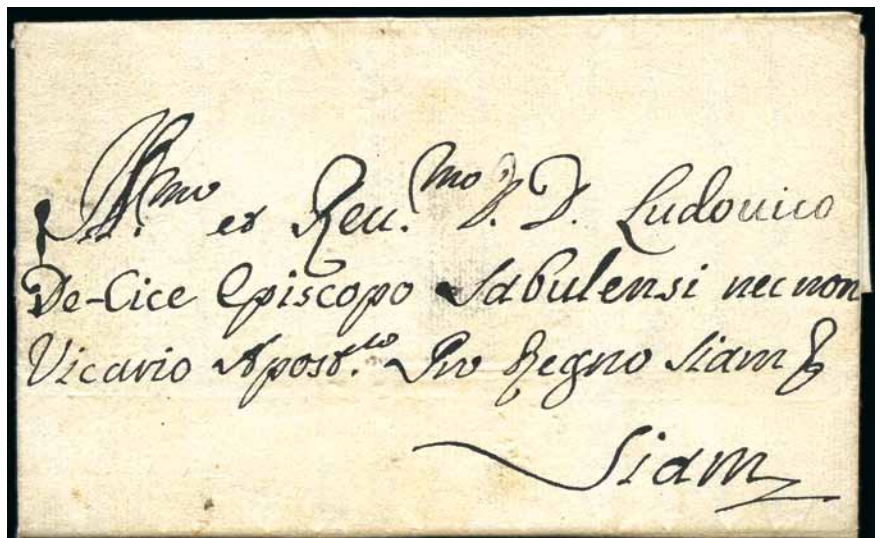 Ill.mo et Reu.mo D. D. Ludouico
De-Cice Episcopo Sabulensi nec non
Vicario Apost.lo Pro Regno Siam
Siam